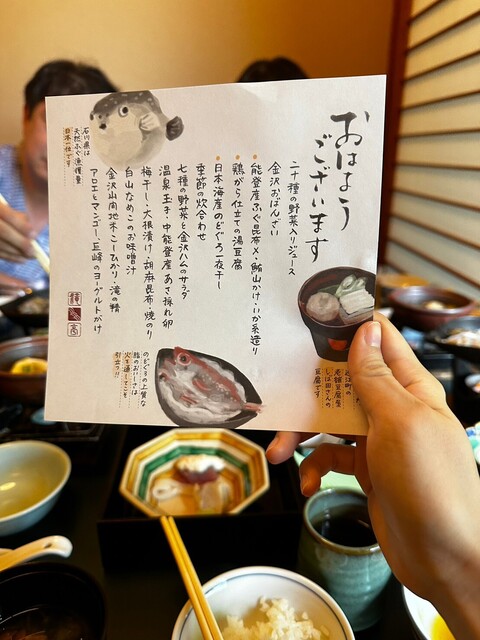 おはよう
ございます
二十種の野菜入りジュース
金沢おばんざい
・能登産ふぐ昆布〆・鮪山かけ・いか糸造り
・鶏がら仕立ての湯豆腐
・日本海産のどぐろ一夜干し
季節の炊合わせ
七種の野菜と金沢ハムのサラダ
温泉玉子・中能登産あさ採れ卵
梅干し・大根漬け・胡麻昆布・焼のり
白山なめこのお味噌汁
金沢山間地米こしひかり 滝の精
アロエとマンゴー、巨峰のヨーグルトがけ
石川県は
天然ふぐ漁獲量
日本一位です
近江町の
老舗豆腐屋
しば田さんの
お豆腐です
のどぐろの上質な
脂のおいしさは
火を通してこそ
引立つ!!